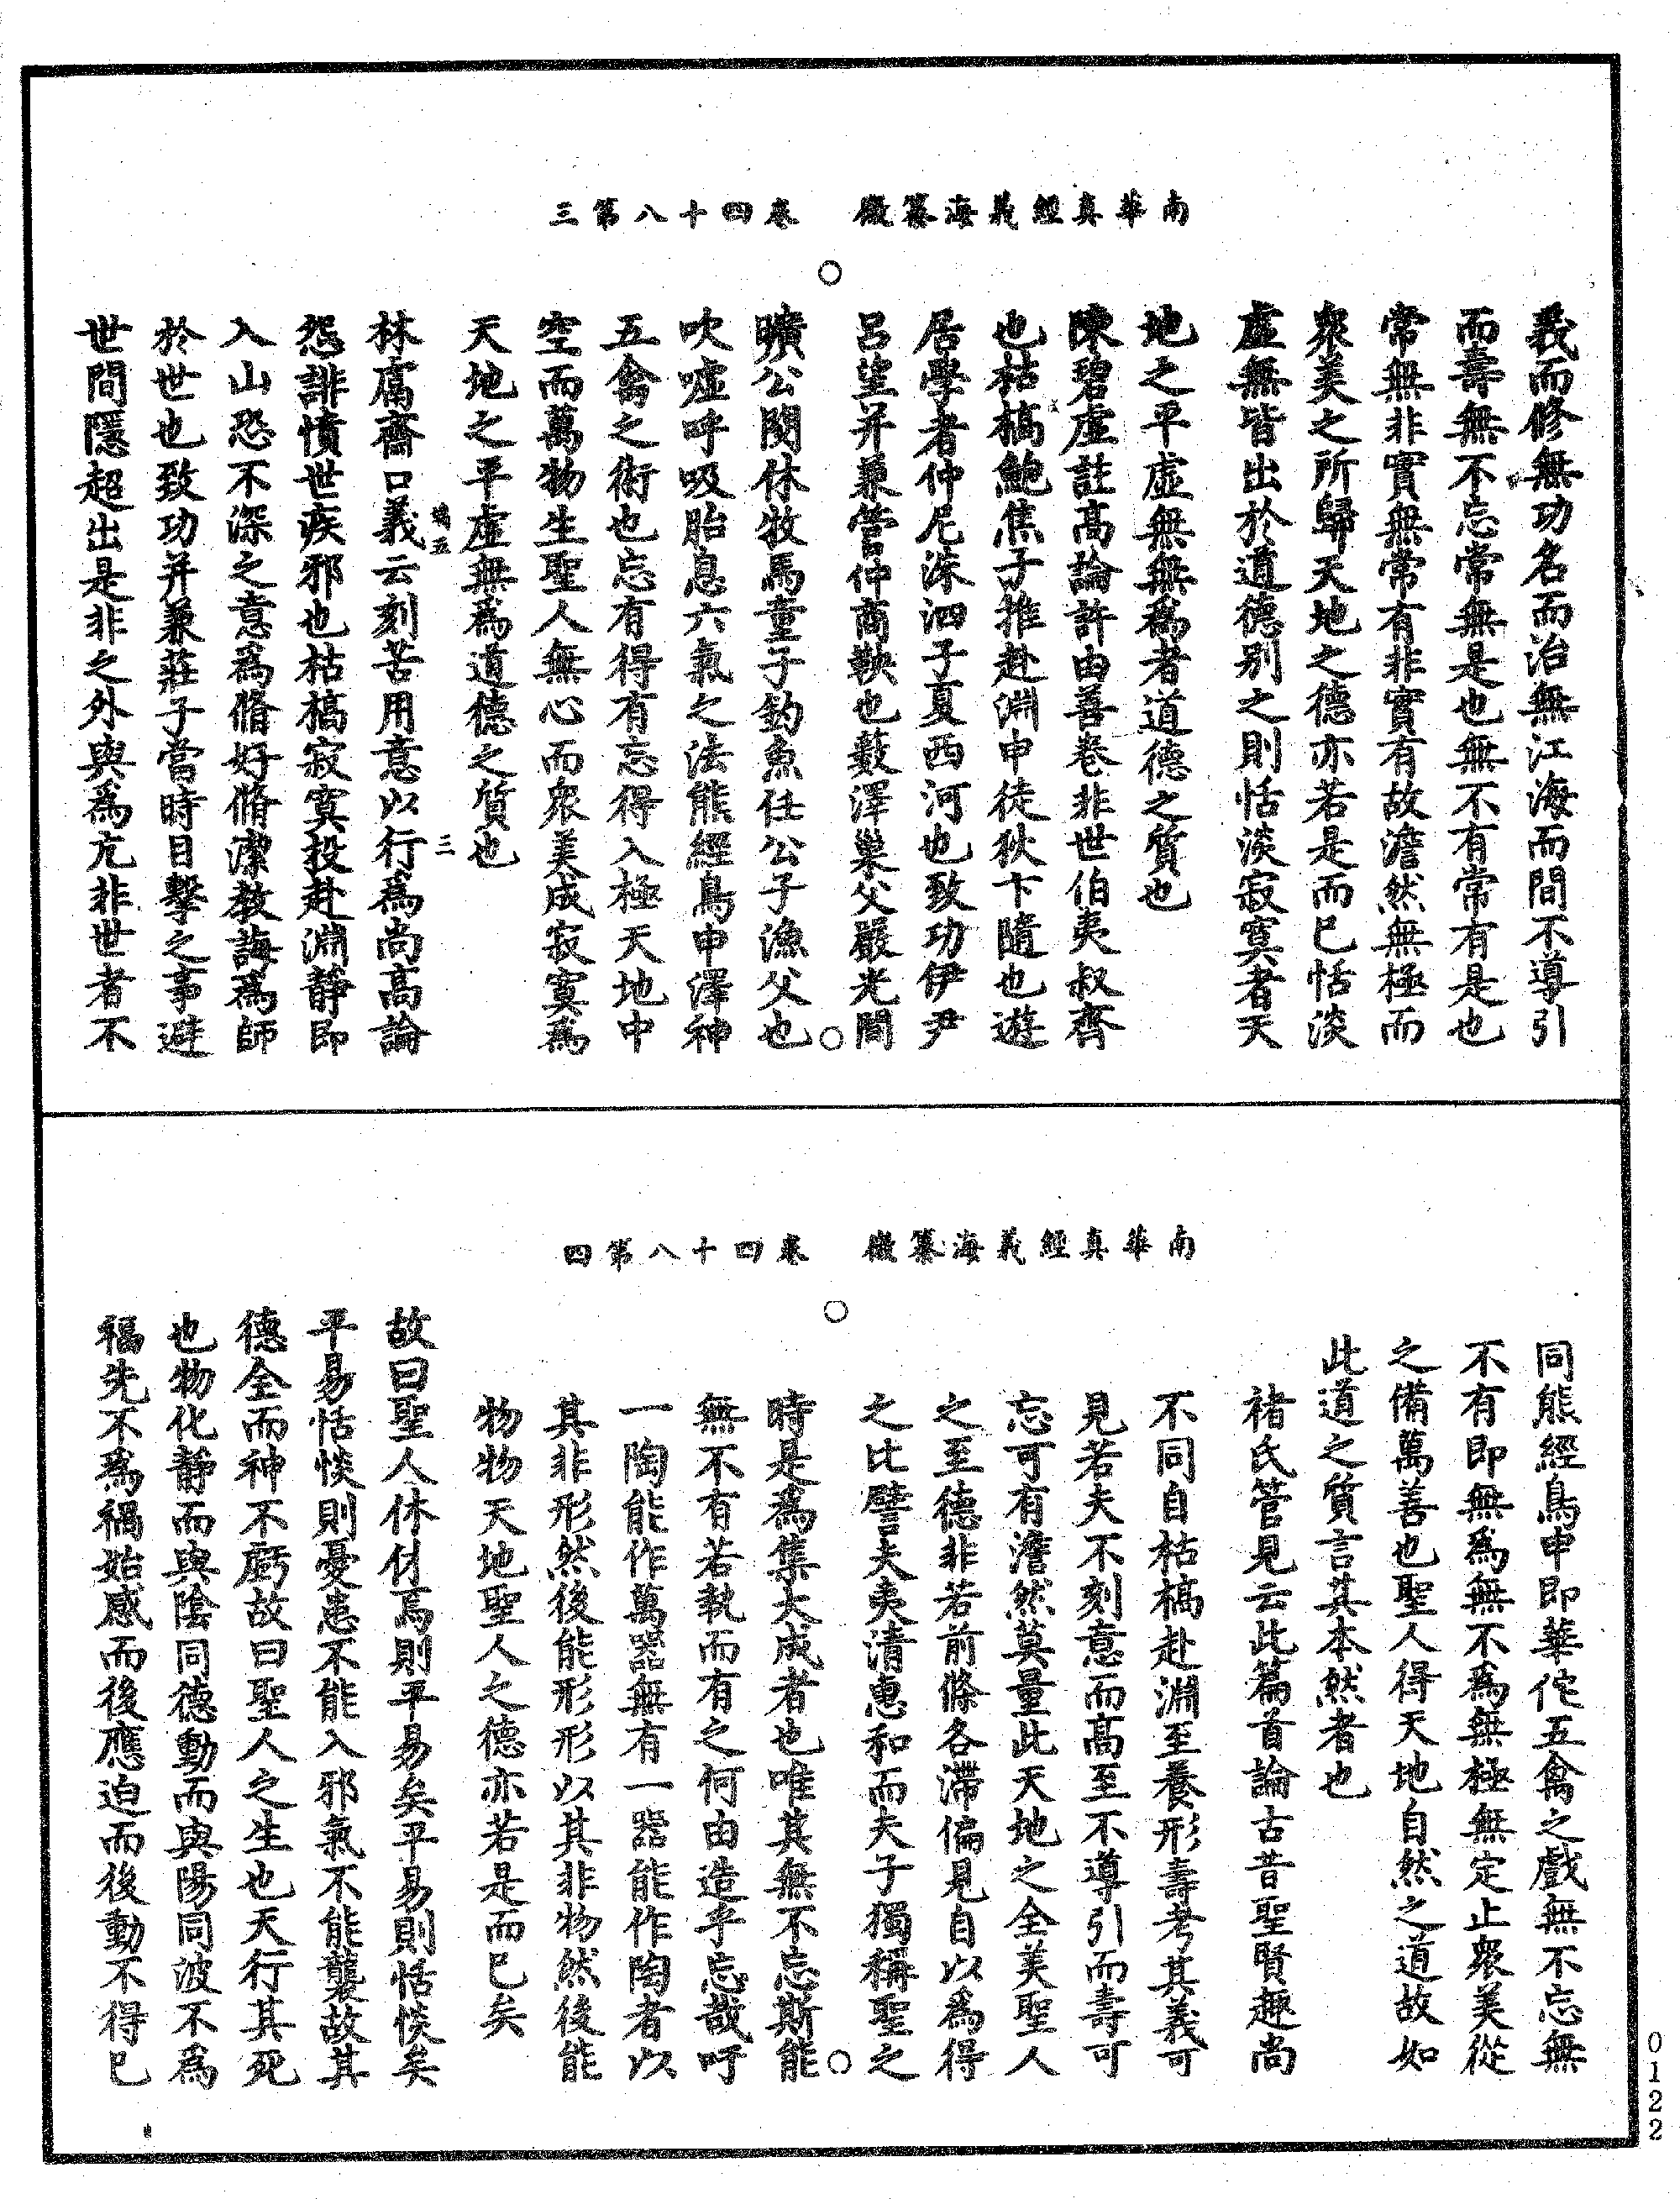 南華真經義海纂微　卷四十八第三
義而修無功名而治無江海而閒不導引
而壽無不忘常無是也無不有常有是也
常無非實無常有非實有故澹然無極而
衆美之所歸天地之德亦若是而已恬淡
虛無皆出於道德別之則恬淡寂寞者天
地之平虛無無為者道德之質也
陳碧虛註高論許由善卷非世伯夷叔齊
也枯槁鮑焦子推赴淵申徒狄卞隨也遊
居學者仲尼洙泗子夏西河也致功伊尹
呂望并兼管仲商鞅也藪澤巢父嚴光閒
曠公閱休牧馬童子釣魚任公子漁父也
吹噓呼吸胎息六氣之法熊經鳥申澤神
五禽之術也忘有得有忘得入極天地中
空而萬物生聖人無心而衆美成寂寞為
天地之平虛無為道德之質也
林鬳齋口義云刻苦用意以行為尚高論
怨誹憤世疾邪也枯槁寂寞投赴淵靜即
入山恐不深之意為脩好脩潔教誨為師
於世也致功并兼莊子當時目擊之事避
世間隱超出是非之外與為亢非世者不
南華真經義海纂微　卷四十八第四
同熊經鳥申即華佗五禽之戲無不忘無
不有即無為無不為無極無定止衆美從
之備萬善也聖人得天地自然之道故如
此道之質言其本然者也
褚氏管見云此篇首論古昔聖賢趣尚
不同自枯槁赴淵至養形壽考其義可
見若夫不刻意而高至不導引而壽可
忘可有澹然莫量此天地之全美聖人
之至德非若前條各滯偏見自以為得
之比譬夫夷清惠和而夫子獨稱聖之
時是為集大成者也唯其無不忘斯能
無不有若執而有之何由造乎忘哉吁
一陶能作萬器無有一器能作陶者以
其非形然後能形形以其非物然後能
物物天地聖人之德亦若是而已矣
故曰聖人休休焉則平易矣平易則恬惔矣
平易恬惔則憂患不能入邪氣不能襲故其
德全而神不虧故曰聖人之生也天行其死
也物化靜而與陰同德動而與陽同波不為
福先不為禍始感而後應迫而後動不得已
0122